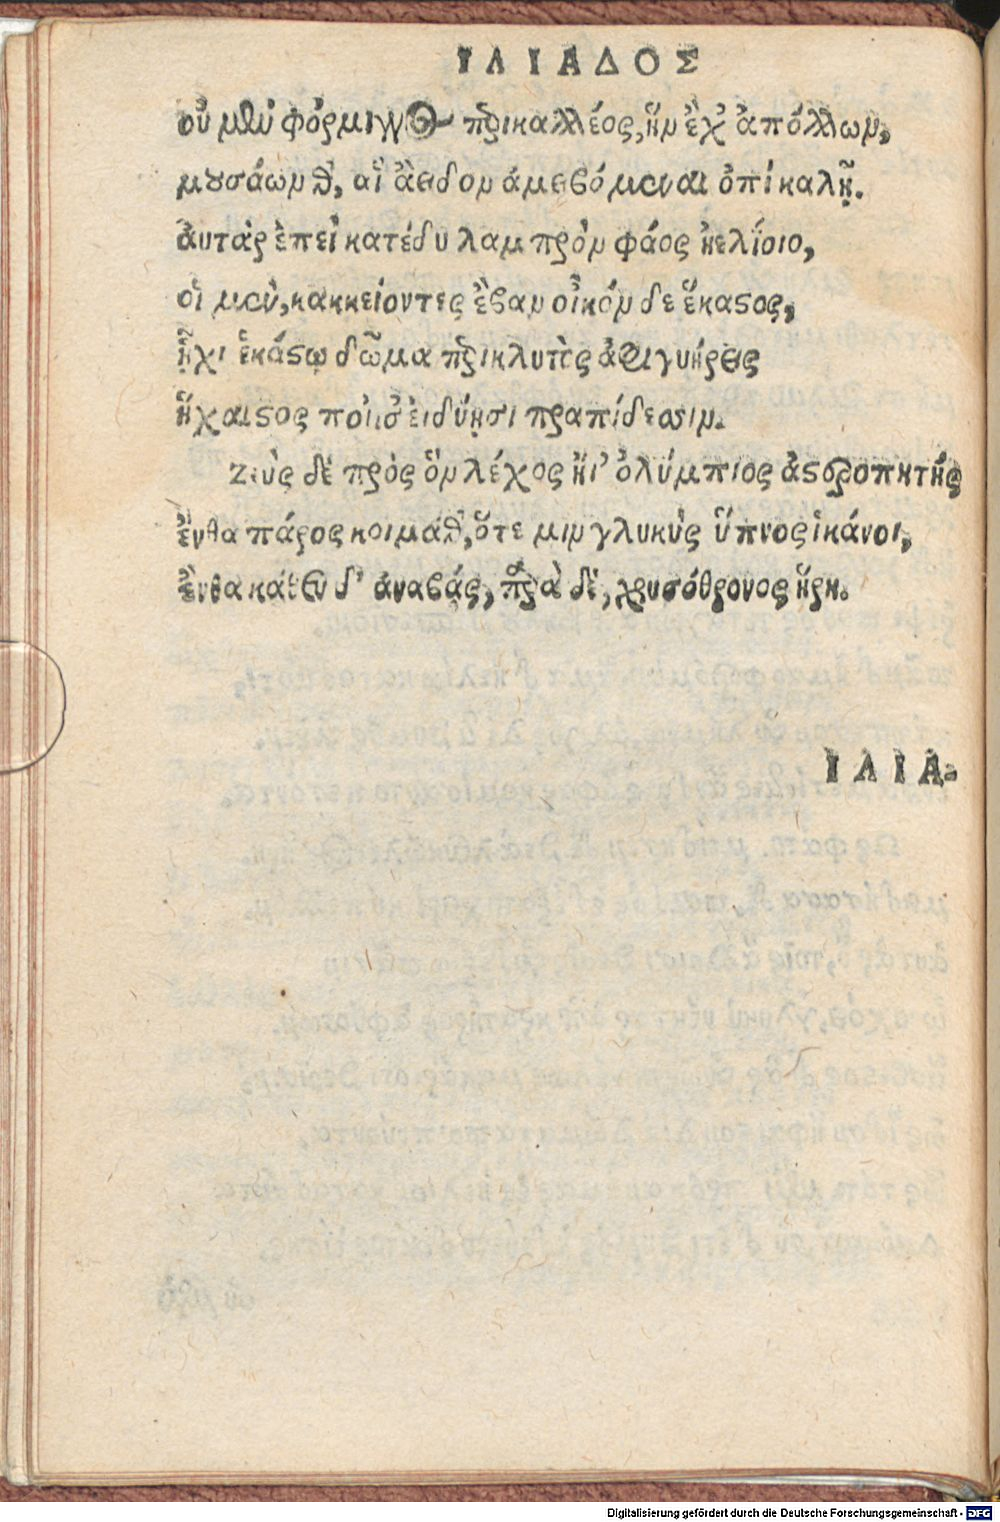 ΙΛΙΑΔΟΣ
οὐ μὲν φόρμιγγος περικαλλέος, ἣν ἔχ' ἀπόλλων,
μουσάων θ', αἳ ἄειδον ἀμειβόμεναι ὀπὶ καλῇ.
ἀυτὰρ ἐπεὶ κατέδυ λαμπρὸν φάος ἠελίοιο,
οἱ μὲν, κακκείοντες ἔβαν οἶκόν δε ἕκαστος,
ἧχι ἑκάστῳ δῶμα περικλυτὸς ἀμφιγυήεις
ἥφαιστος ποίησ' εἰδυίῃσι πραπίδεσσιν.
Ζεὺς δὲ πρὸς ὃν λέχος ἤϊ' ὀλύμπιος ἀστεροπητὴς
ἔνθα πάρος κοιμᾶθ', ὅτε μιν γλυκὺς ὕπνος ἱκάνοι,
ἔνθα κάθευδ' ἀναβάς, παρὰ δὲ, χρυσόθρονος ἥρη.
ΙΛΙΑ-
Digitalisierung gefördert durch die Deutsche Forschungsgemeinschaft - DFG